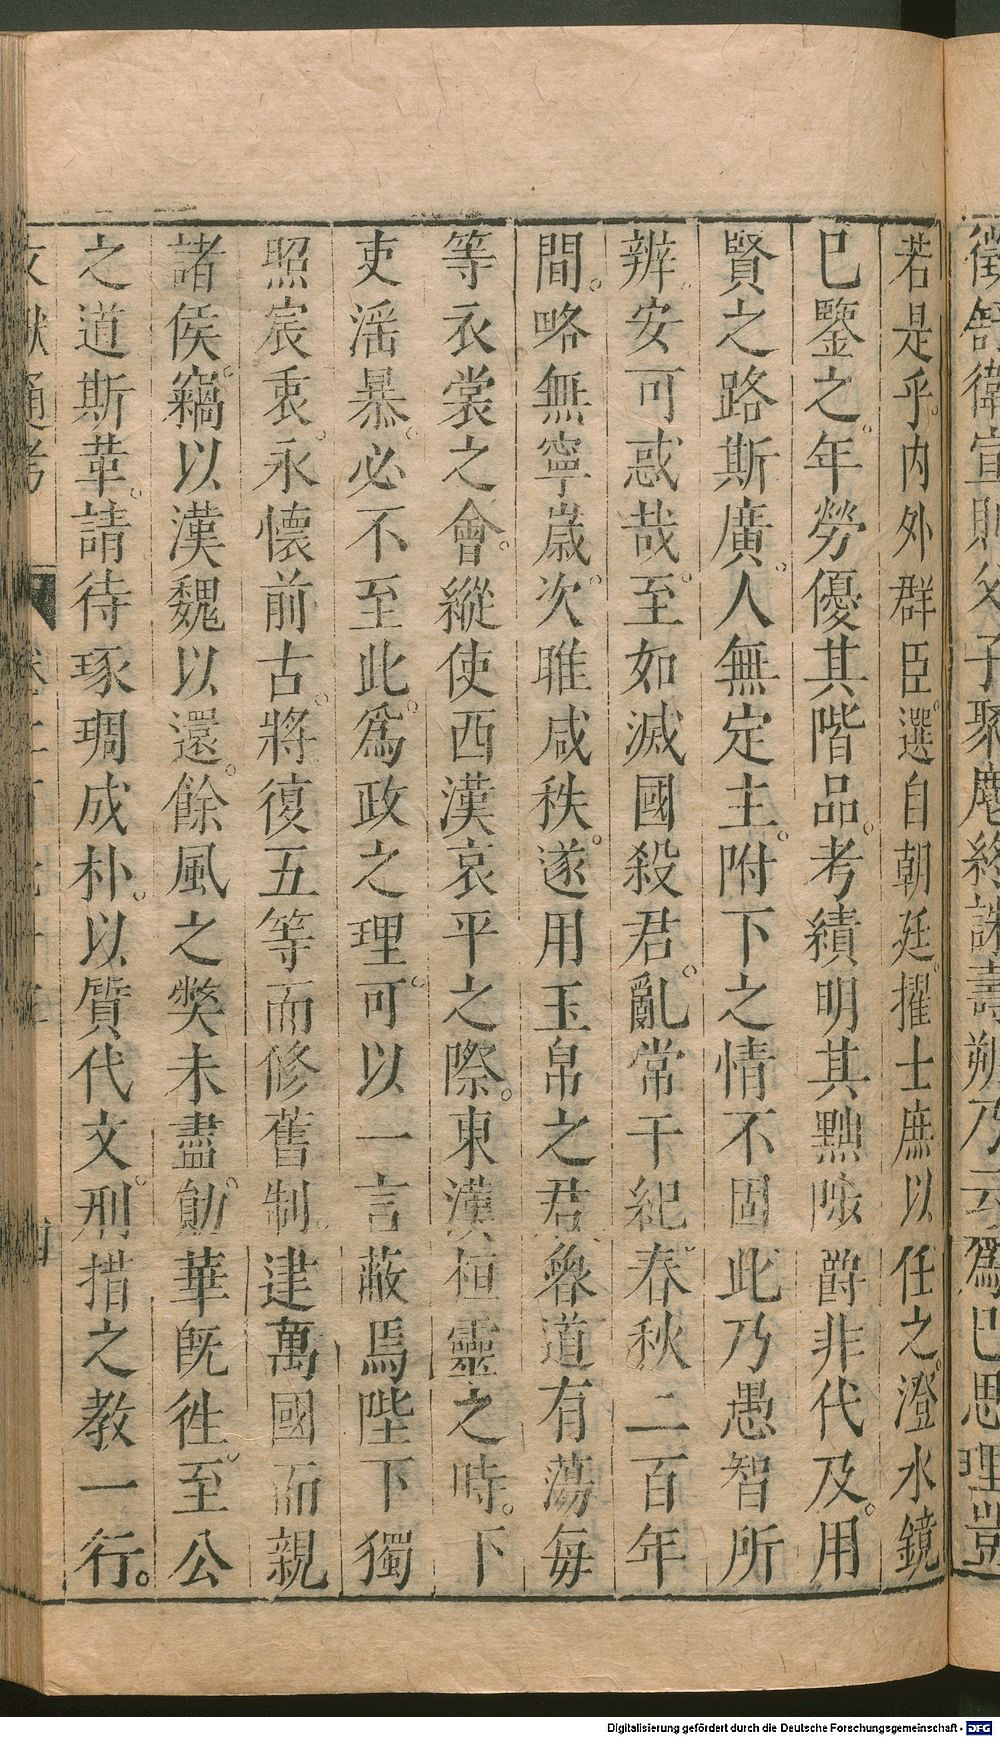 徵舒衛宣則父子聚麀終誅壽朔乃云爲巳思理豈
若是乎內外群臣選自朝廷擢士庶以任之澄水鏡
巳鑒之年勞優其階品考績明其黜陟爵非代及用
賢之路斯廣人無定主附下之情不固此乃愚智所
辨安可惑哉至如滅國殺君亂常干紀春秋二百年
間略無寧歲次睢咸秩遂用玉帛之君魯道有蕩每
等衣裳之會縱使西漢哀平之際東漢桓靈之時下
吏淫暴必不至此爲政之理可以一言蔽焉陛下獨
照宸衷永懷前古將復五等而修舊制建萬國而親
諸侯竊以漢魏以還餘風之獘未盡勛華旣徃至公
之道斯革請待琢琱成朴以質代文刑措之教一行
文獻通考 卷二百七十五
Digitalisierung gefördert durch die Deutsche Forschungsgemeinschaft - DFG